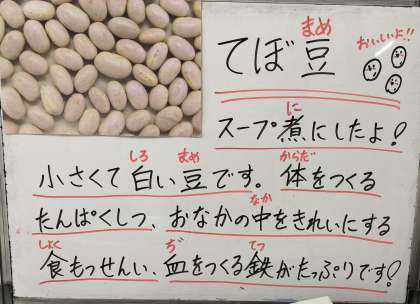 まめ
てぼ豆
おいしいよ!!
に
スープ煮にしたよ!
しろ まめ からだ
小さくて白い豆です。体をつくる
なか
たんぱくしつ、おなかの中をきれいにする
しょく ぢ てつ
食もつせんい、血をつくる鉄がたっぷりです!